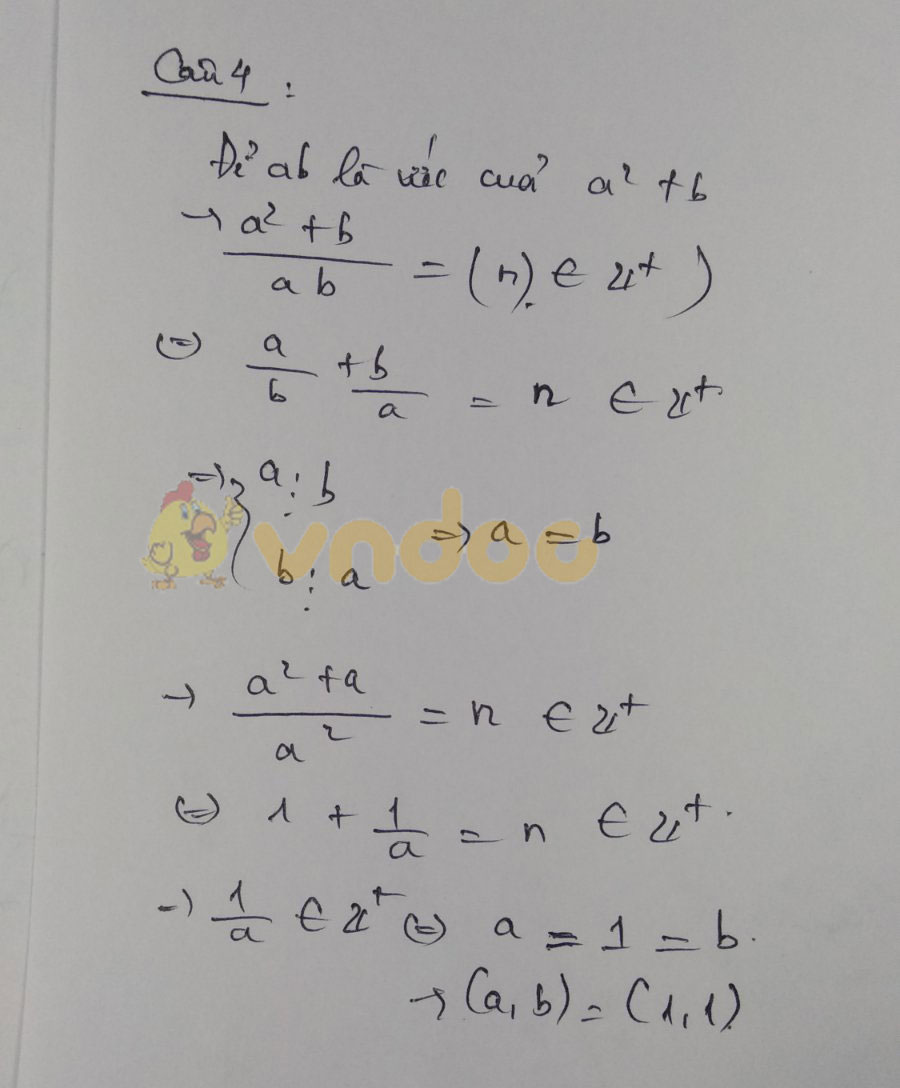 Câu 4 :
Để ab là ước của a² + b
→ (a² + b)/(ab) = (n) ∈ Z⁺ )
⇔ a/b + b/a = n ∈ Z⁺
⇒ { a ⋮ b
b ⋮ a ⇒ a = b
vndoc
→ (a² + a)/a² = n ∈ Z⁺
⇔ 1 + 1/a = n ∈ Z⁺.
→ 1/a ∈ Z⁺ ⇔ a = 1 = b.
→ (a, b) = (1, 1)